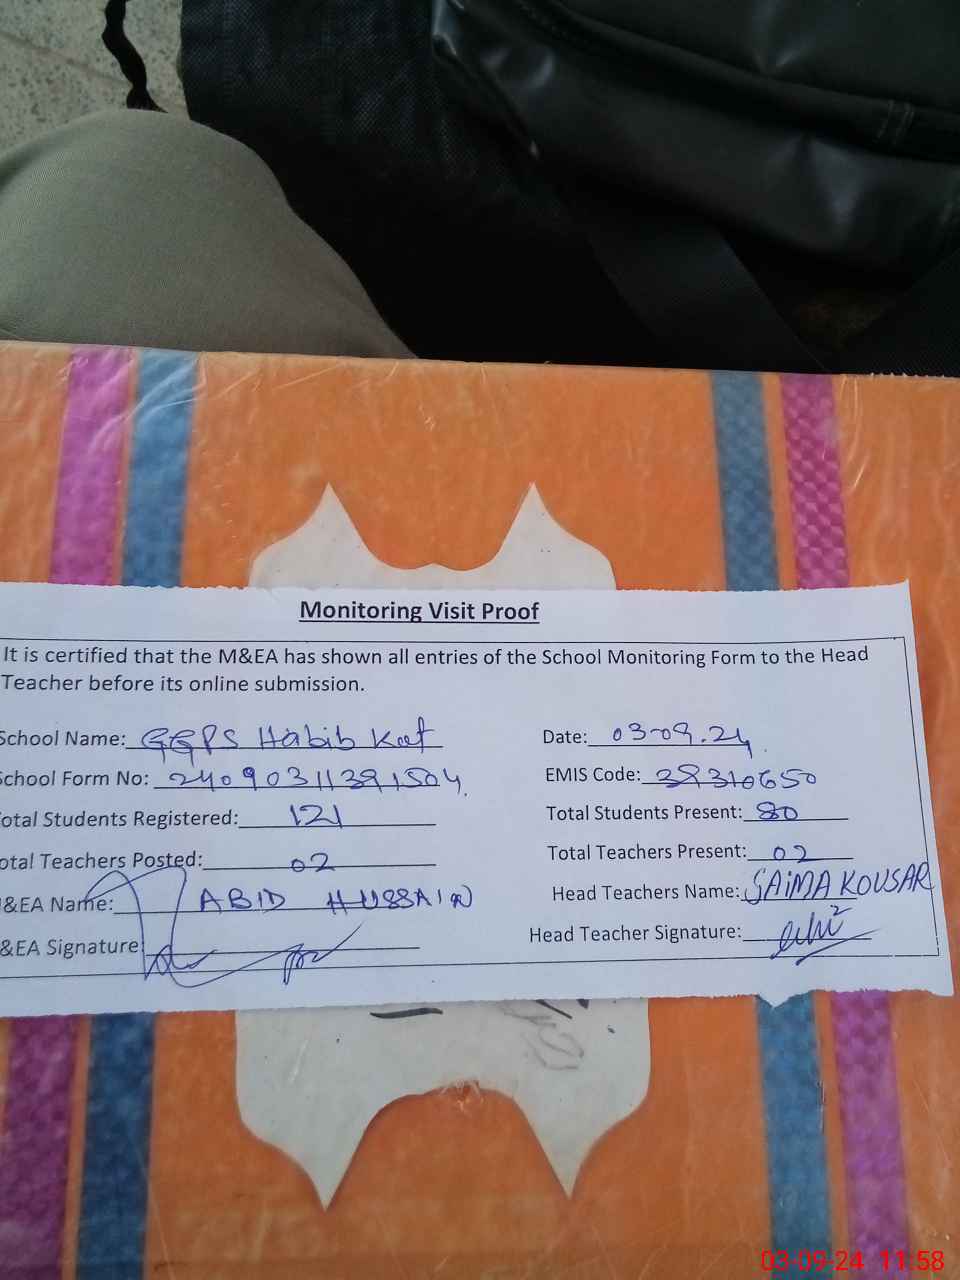 Monitoring Visit Proof
It is certified that the M&EA has shown all entries of the School Monitoring Form to the Head
Teacher before its online submission.
School Name: GGPS Habib Kot Date: 03-09.24
School Form No: 24090311391504 EMIS Code: 39310650
otal Students Registered: 121 Total Students Present: 80
otal Teachers Posted: 02 Total Teachers Present: 02
&EA Name: ABID HUSSAIN Head Teachers Name: SAIMA KOUSAR
&EA Signature Head Teacher Signature:
03-09-24 11:58